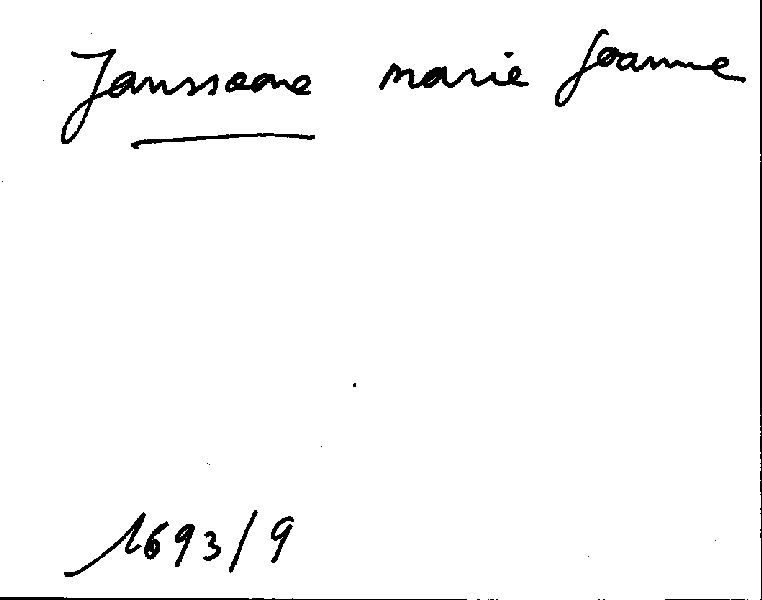 Janssone marie Joanne
1693/9